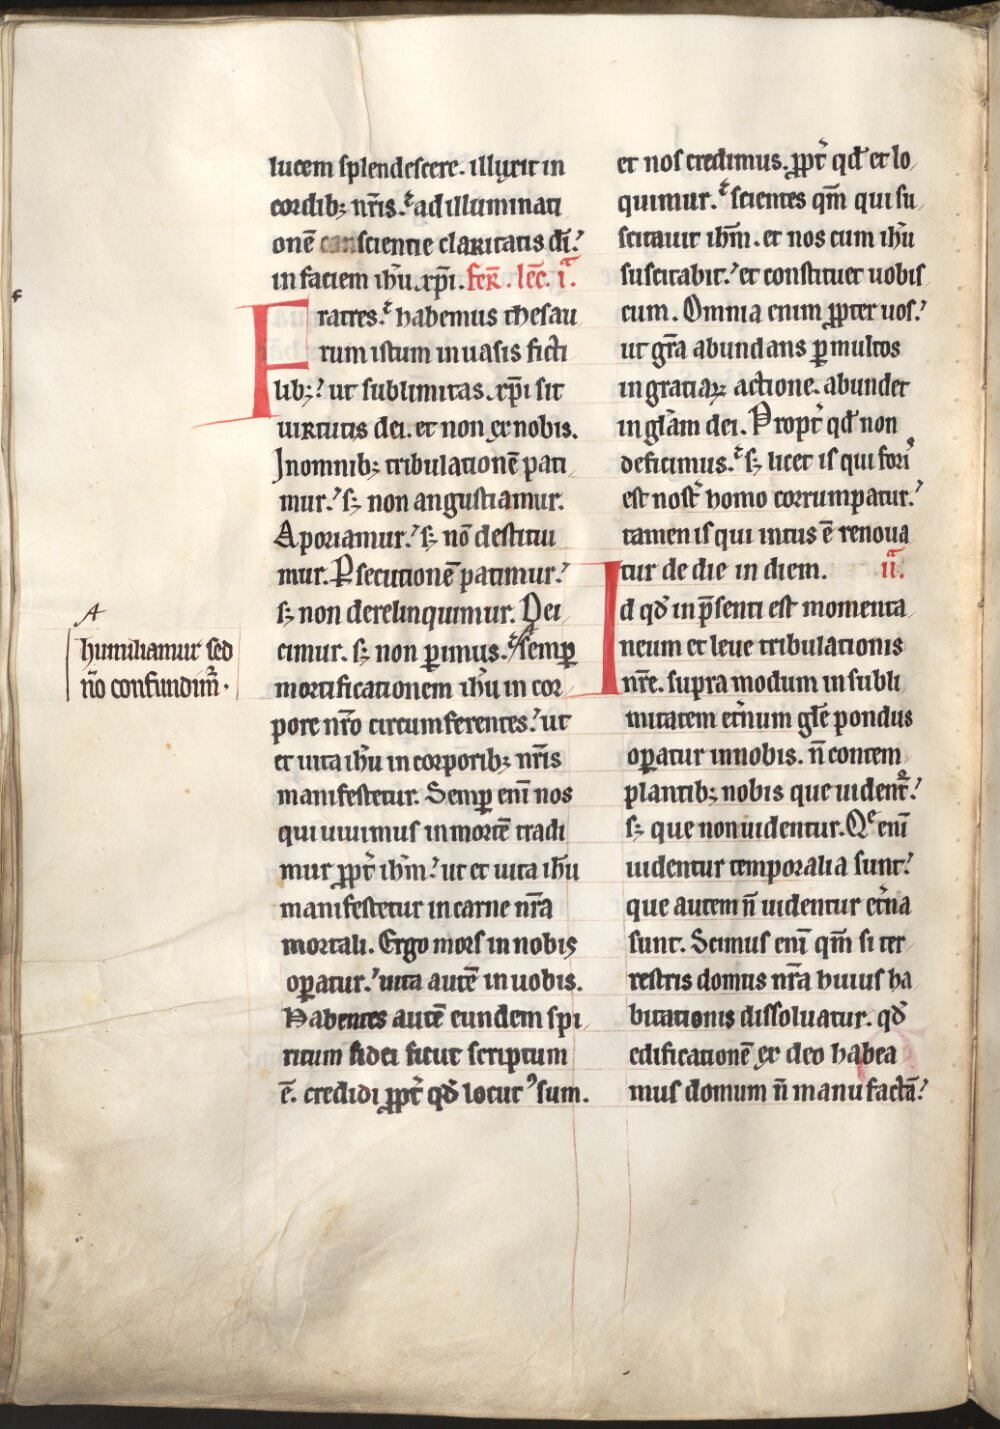 lucem splendescere. illuxit in
cordib; nr̄is. ad illuminati
onē scientie claritatis dī.
in faciem ih̄u xp̄i. fer̄. lēc. i.ª
Fratres. habemus thesau
rum istum in uasis ficti
lib;. ut sublimitas xp̄i sit
uirtutis dei. et non ex nobis.
In omnib; tribulationē pati
mur. s; non angustiamur.
Aporiamur. s; nō destitui
mur. ꝑsecutionē patimur.
s; non derelinquimur. Dei
cimur. s; non ꝑimus. semꝑ
mortificationem ih̄u in cor
pore nr̄o circumferentes. ut
et uita ih̄u in corporib; nr̄is
manifestetur. Semꝑ enī nos
qui uiuimus in mortē tradi
mur ꝓpt̄ ih̄m. ut et uita ih̄u
manifestetur in carne nr̄a
mortali. Ergo mors in nobis
oꝑatur. uita autē in uobis.
Habentes autē eundem spi
ritum fidei sicut scriptum
ē. credidi ꝓpt̄ qđ locutꝰ sum.
A
humiliamur sed
n̄o confundim̄.
et nos credimus. ꝓpt̄ qđ et lo
quimur. scientes qm̄ qui su
scitauit ih̄m. et nos cum ih̄u
suscitabit. et constituet uobis
cum. Omnia enim ꝓpter uos.
ut gr̄a abundans ꝑ multos
in gratiaꝝ actione. abundet
in gl̄am dei. Propt̄ qđ non
deficimus. s; licet is qui foris
est nost̄ homo corrumpatur.
tamen is qui intus ē renoua
tur de die in diem. ii.ª
Id qđ in p̄senti est momenta
neum et leue tribulationis
nr̄e. supra modum in subli
mitatem et̄num gl̄e pondus
oꝑatur in nobis. n̄ contem
plantib; nobis que uident̄.
s; que non uidentur. Qe enī
uidentur temporalia sunt.
que autem n̄ uidentur et̄na
sunt. Scimus enī qm̄ si ter
restris domus nr̄a huius ha
bitationis dissoluatur. qđ
edificationē ex deo habea
mus domum n̄ manu factā.